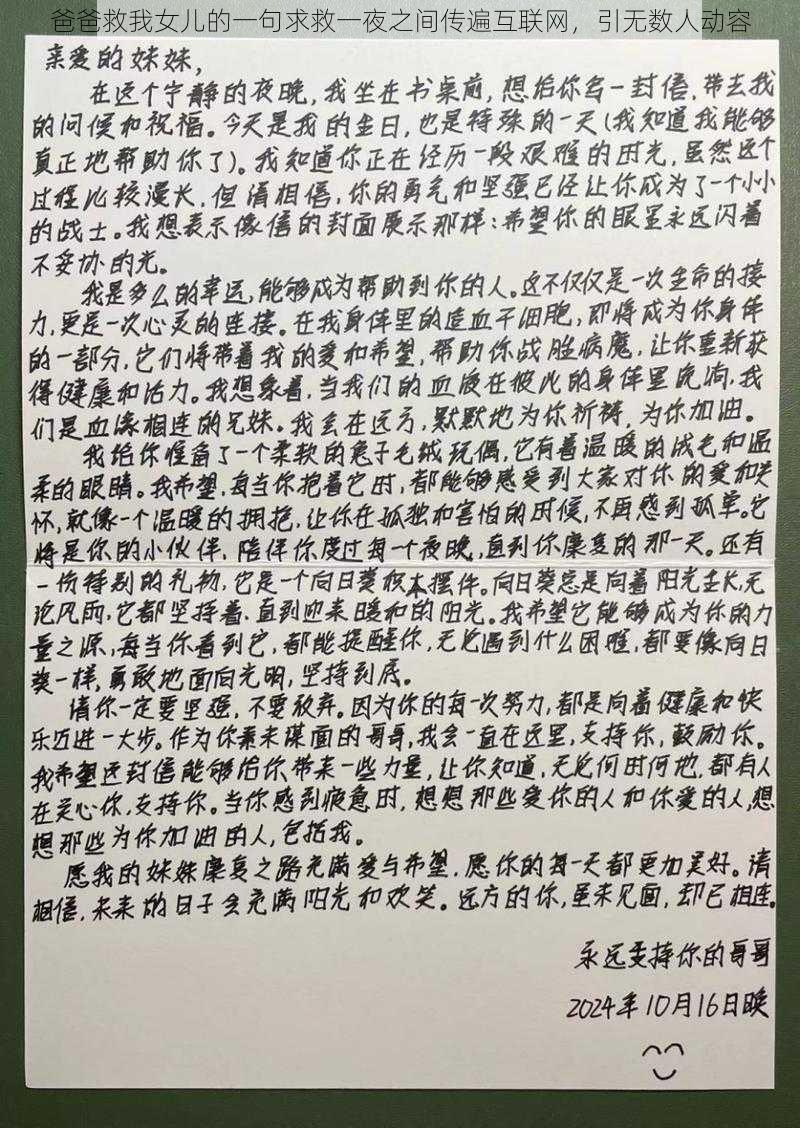 爸爸救我女儿的一句求救一夜之间传遍互联网，引无数人动容
亲爱的妹妹，
在这个宁静的夜晚，我坐在书桌前，想给你写一封信，带去我
的问候和祝福。今天是我的生日，也是特殊的一天（我知道我能够
真正地帮助你了）。我知道你正在经历一段艰难的时光，虽然这个
过程比较漫长，但请相信，你的勇气和坚强已经让你成为了一个小小
的战士。我想表示像信的封面展示那样：希望你的眼里永远闪着
不妥协的光。
我是多么的幸运，能够成为帮助到你的人。这不仅仅是一次生命的接
力，更是一次心灵的连接。在我身体里的造血干细胞，即将成为你身体
的一部分，它们将带着我的爱和希望，帮助你战胜病魔，让你重新获
得健康和活力。我想象着，当我们的血液在彼此的身体里流淌，我
们是血缘相连的兄妹。我会在远方，默默地为你祈祷，为你加油。
我给你准备了一个柔软的兔子毛绒玩偶，它有着温暖的绒毛和温
柔的眼睛。我希望，每当你抱着它时，都能够感受到大家对你的爱和关
怀，就像一个温暖的拥抱，让你在孤独和害怕的时候，不再感到孤单。它
将是你的小伙伴，陪伴你度过每一个夜晚，直到你康复的那一天。还有
一份特别的礼物，它是一个向日葵积木摆件。向日葵总是向着阳光生长，无
论风雨，它都坚持着，直到迎来暖和的阳光。我希望它能够成为你的力
量之源，每当你看到它，都能提醒你，无论遇到什么困难，都要像向日
葵一样，勇敢地面向光明，坚持到底。
请你一定要坚强，不要放弃。因为你的每一次努力，都是向着健康和快
乐迈进一大步。作为你素未谋面的哥哥，我会一直在这里，支持你，鼓励你。
我希望这封信能够给你带来一些力量，让你知道，无论何时何地，都有人
在关心你，支持你。当你感到疲惫时，想想那些爱你的人和你爱的人，想
想那些为你加油的人，包括我。
愿我的妹妹康复之路充满爱与希望，愿你的每一天都更加美好。请
相信，未来的日子会充满阳光和欢笑。远方的你，虽未见面，却已相连。
永远支持你的哥哥
2024年10月16日晚